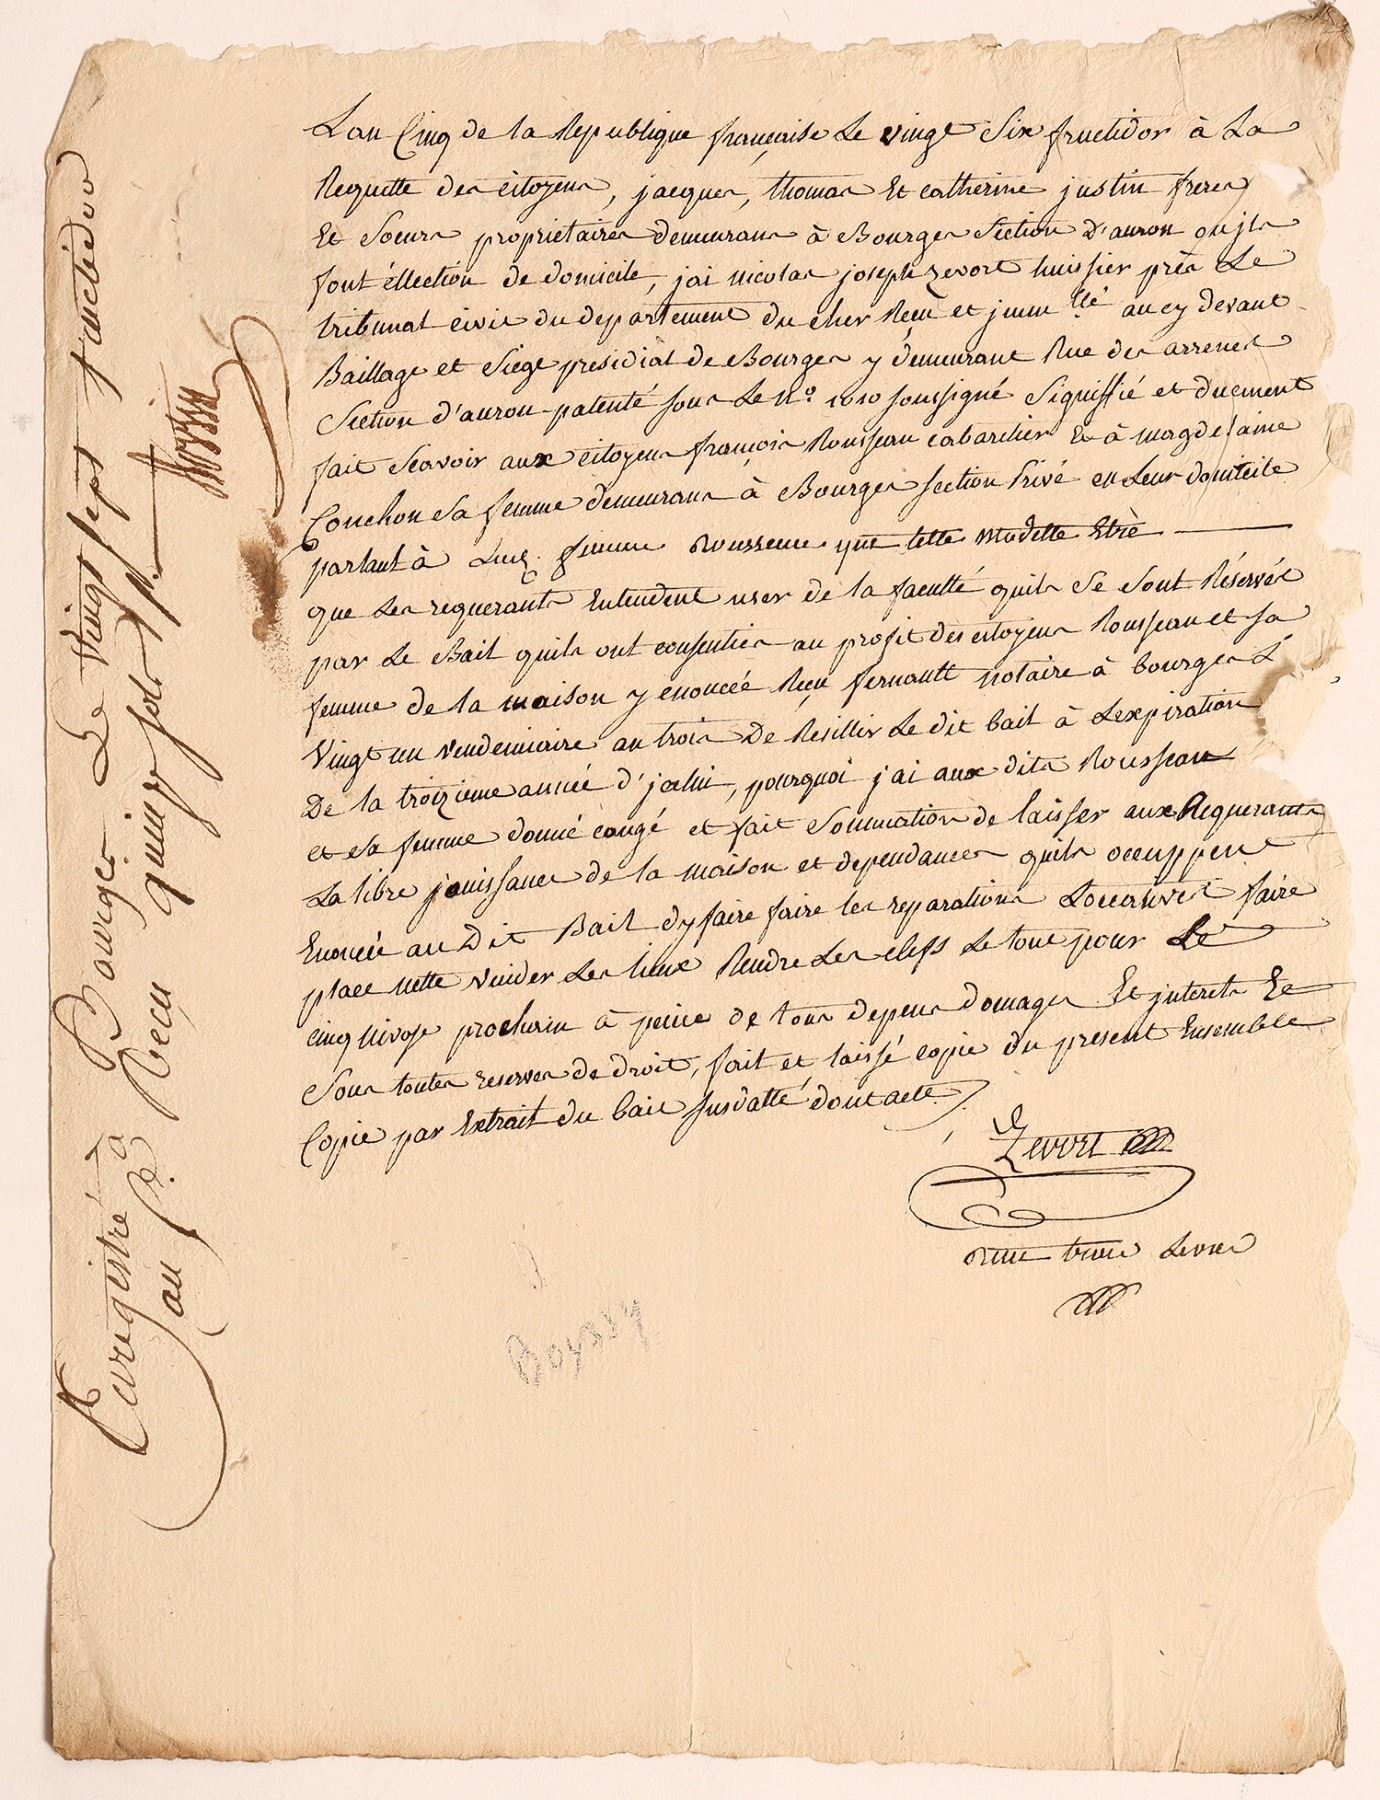 Lan Cinq de la Republique française Le vingt Six fructidor à La
Requette des citoyens, jacques, thomas Et catherine justin freres
Et Soeurs proprietaires demeurans à Bourges Section d'auron ou jls
font éllection de domicile, jai nicolas joseph zevort huissier près Le
tribunal civil du departement du cher Reçu et jmm.llé au cy devant
Baillage et Siege presidial de Bourges y demeurant Rue des arrenes
Section d'auron patenté sous Le N.o 1010 soussigné Signiffié et duement
fait Scavoir aux citoyens françois Rousseau cabaretier Et à magdelaine
Couchon Sa femme demeurans à Bourges section Privé en Leur domicile
parlant à femme
que Les requerants Entendent user de la facultté quils Se Sont Réservés
par Le Bail quils ont consenties au profit des citoyens Rousseau et sa
femme de la maison y enoncée Reçu fernault notaire à bourges L
Vingt un vendemiaire an trois De Resillir Le dit bail à Lexpiration
De la troizieme année d'jcelui, pourquoi j'ai aux dits Rousseau
et Sa femme donné congé et fait Sommation de laisser aux Requerants
La libre jouissance de la maison et dependances quils occuppent
Enoncée au Dit Bail dy faire faire les reparations Locatives faire
place nette vuider Les lieux Rendre Les clefs Le tout pour Le
cinq nivose prochain à peine de tous depens domages Et jnterets Et
Sous toutes reserves de droit, fait et laissé copie du present Ensemble
Copie par Extrait du bail susdatté dont acte
Zevort
Boyssy
Enregistré a Bourges Le Vingt sept fructidor
an Recu quinze sols